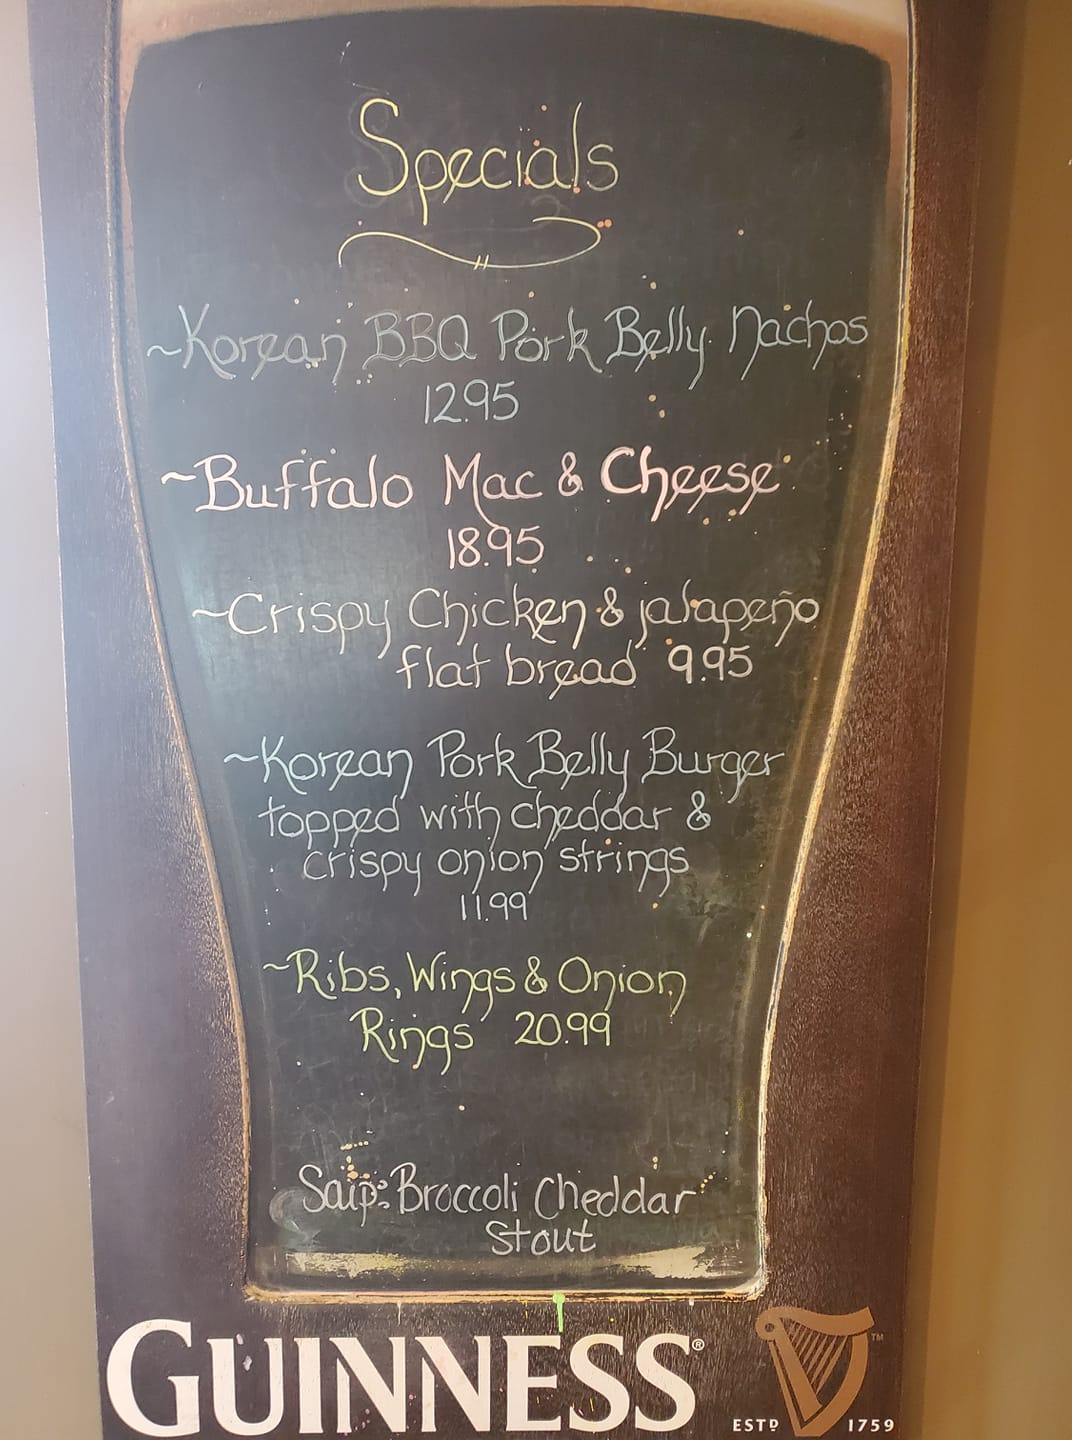 Specials
~Korean BBQ Pork Belly Nachos
12.95
~Buffalo Mac & Cheese
18.95
~Crispy Chicken & jalapeño
flat bread 9.95
~Korean Pork Belly Burger
topped with cheddar &
crispy onion strings
11.99
~Ribs, Wings & Onion
Rings 20.99
Soup: Broccoli Cheddar
Stout
GUINNESS®
ESTD 1759 ™